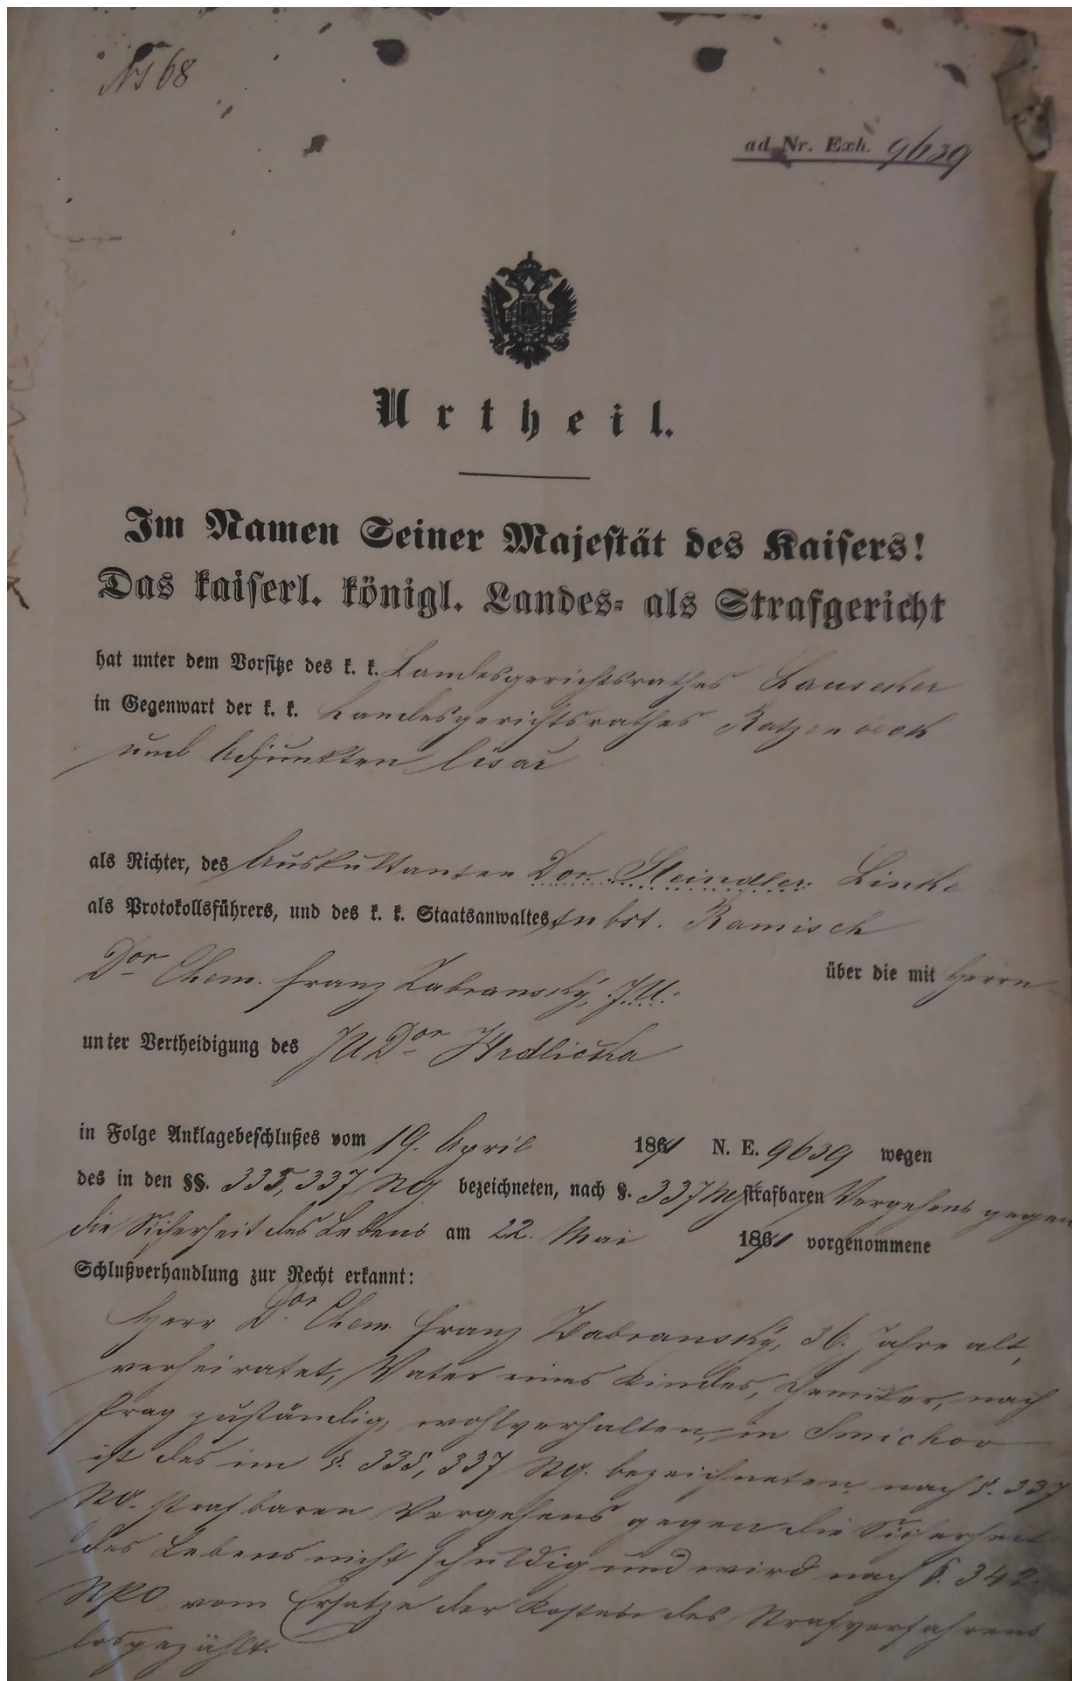 № 68
ad Nr. Exh. 9639
Urtheil.
Im Namen Seiner Majestät des Kaisers!
Das kaiserl. königl. Landes- als Strafgericht
hat unter dem Vorsitze des k. k. Landesgerichtsrathes
in Gegenwart der k. k. Landesgerichtsrathes Katzenbeck
und Adjunkten Cisar
als Richter, des Auskultanten Dor. Steindler Linke
als Protokollsführers, und des k. k. Staatsanwaltes subst. Ramisch
über die mit Herrn
Dor Chem. Franz Zabransky, J.U.
unter Vertheidigung des JU Dor Hrdlicska
in Folge Anklagebeschlußes vom 19. April 1861 N. E. 9639 wegen
des in den §§. 335, 337 StG bezeichneten, nach §. 337 StG strafbaren Vergehens gegen
die Sicherheit des Lebens am 22. Mai 1861 vorgenommene
Schlußverhandlung zur Recht erkannt:
Herr Dor. Chem. Franz Zabransky, 36. Jahre alt,
verheiratet, Vater eines Kindes, Chemiker, nach
Prag zuständig, wohlverhalten, in Smichov
ist des im §. 335, 337 StG. bezeichneten, nach §. 337
StG. strafbaren Vergehens gegen die Sicherheit
des Lebens nicht schuldig und wird nach §. 342
StPO vom Ersatze der Kosten des Strafverfahrens
losgezählt.